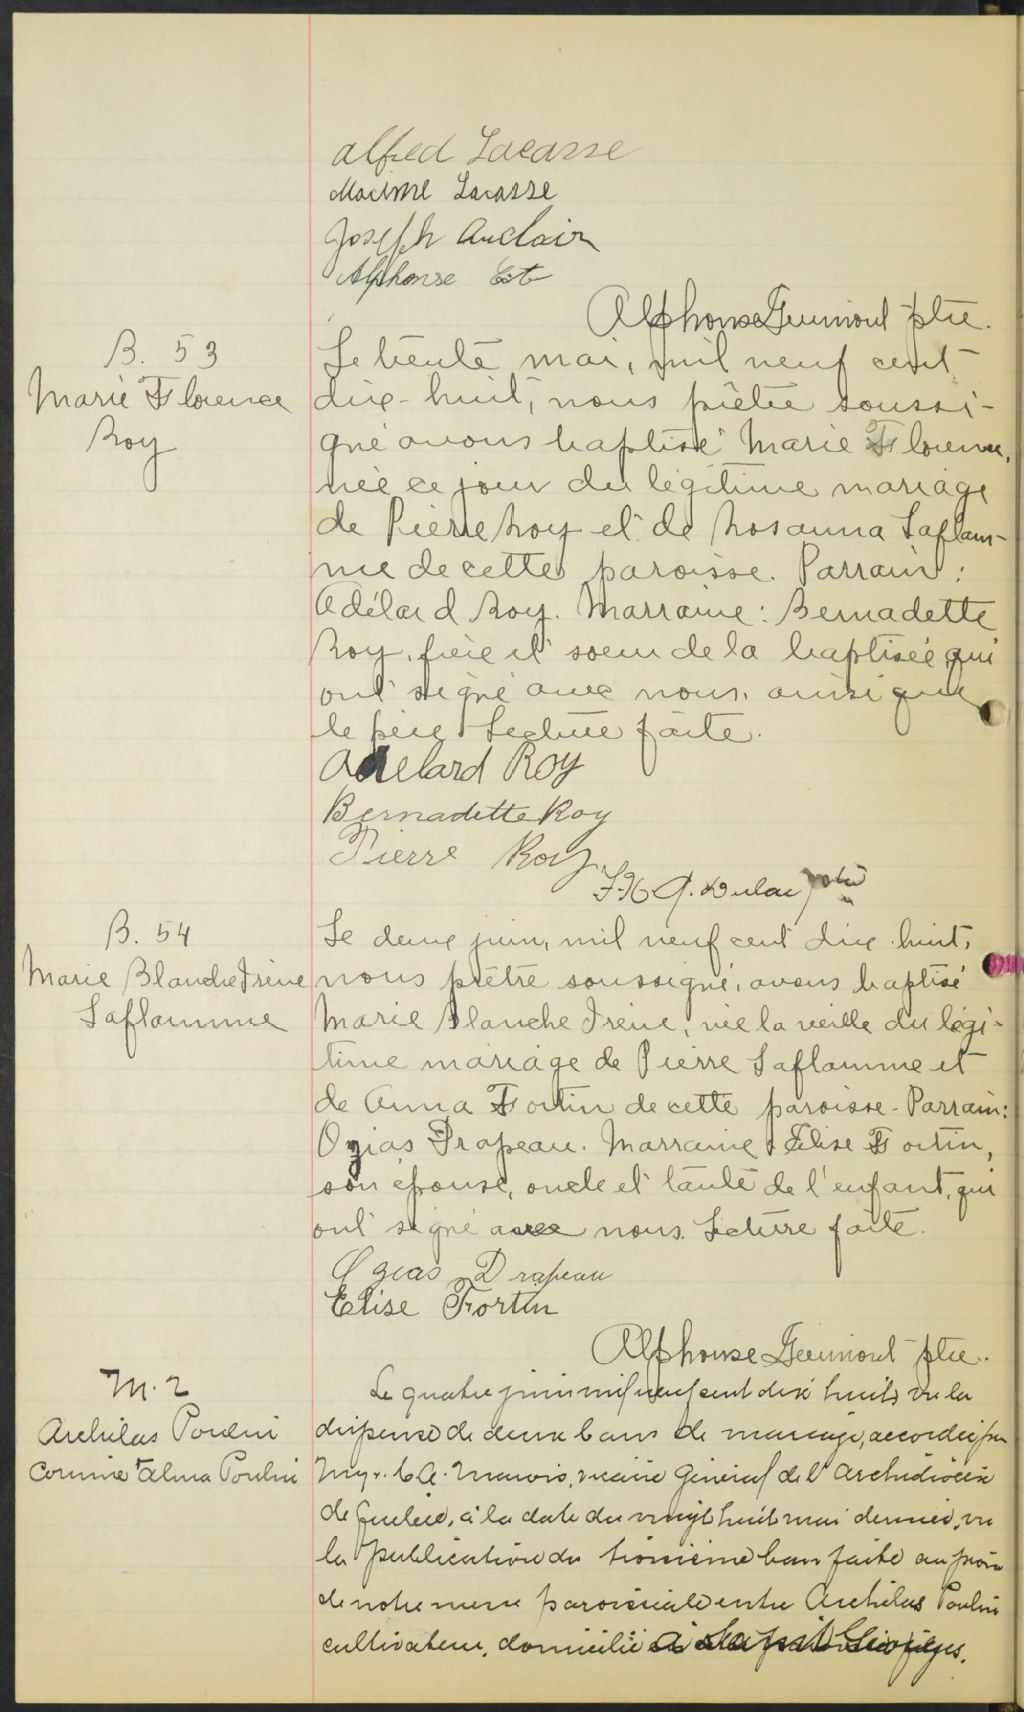 Alfred Lacasse
Maxime Lacasse
Joseph Auclair
Alphonse
Alphonse Gumont ptre.
B. 53
Marie Florence
Roy
Le trente mai, mil neuf cent
dix-huit, nous prêtre soussi-
gné avons baptisé Marie Florence,
née ce jour du légitime mariage
de Pierre Roy et de Rosanna Laflam-
me de cette paroisse. Parrain:
Adélard Roy. Marraine: Bernadette
Roy, frère et soeur de la baptisée qui
ont signé avec nous, ainsi que
le père Lecture faite.
Adelard Roy
Bernadette Roy
Pierre Roy
Dulac ptre
B. 54
Marie Blanche Irène
Laflamme
Le deux juin, mil neuf cent dix-huit,
nous prêtre soussigné, avons baptisé
Marie Blanche Irène, née la veille du légi-
time mariage de Pierre Laflamme et
de Anna Fortin de cette paroisse. Parrain:
Ozias Drapeau. Marraine Elise Fortin,
son épouse, oncle et tante de l'enfant, qui
ont signé avec nous. Lecture faite.
Ozias Drapeau
Elise Fortin
Alphonse Gumont ptre.
M. 2
Archilas Poulin
Corinne Alma Poulin
Le quatre juin mil neuf cent dix huit, vu la
dispense de deux bans de mariage, accordée par
Mgr. C. A. Marois, vicaire Général de l'Archidiocèse
de Québec, à la date du vingt huit mai dernier, vu
la publication du troisième ban faite au prône
de notre messe paroissiale entre Archilas Poulin
cultivateur, domicilié à